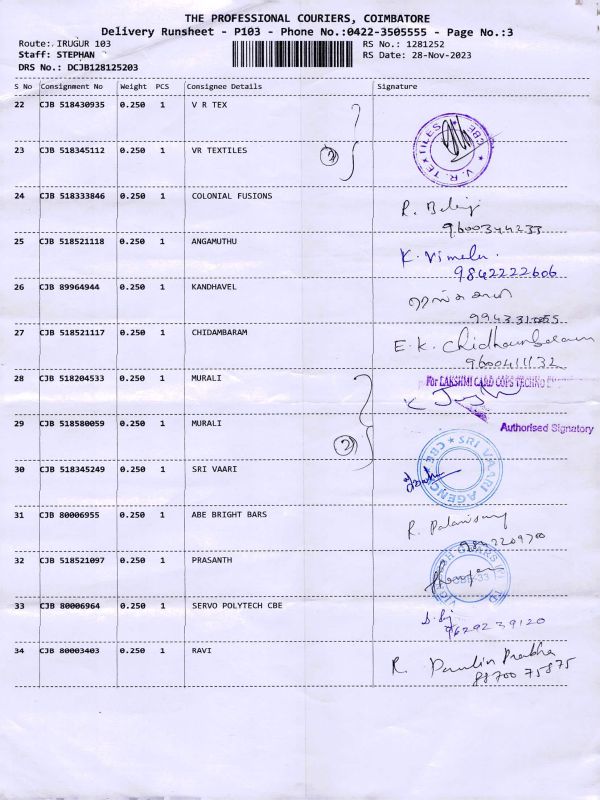 THE PROFESSIONAL COURIERS, COIMBATORE
Delivery Runsheet - P103 - Phone No.:0422-3505555 - Page No.:3
Route: IRUGUR 103 RS No.: 1281252
Staff: STEPHAN RS Date: 28-Nov-2023
DRS No.: DCJB128125203
S No Consignment No Weight PCS Consignee Details Signature
22 CJB 518430935 0.250 1 V R TEX
23 CJB 518345112 0.250 1 VR TEXTILES 2 V.R. TEXTILES ★ CBE ★
24 CJB 518333846 0.250 1 COLONIAL FUSIONS R.
9600344233
25 CJB 518521118 0.250 1 ANGAMUTHU K. Vimala
9842222606
26 CJB 89964944 0.250 1 KANDHAVEL
27 CJB 518521117 0.250 1 CHIDAMBARAM E.K. Chidhambaram
9600411132
28 CJB 518204533 0.250 1 MURALI For LAKSHMI CARD COPS TECHNO
29 CJB 518580059 0.250 1 MURALI 2 Authorised Signatory
30 CJB 518345249 0.250 1 SRI VAARI SRI VAARI AGENCY ★ CBE
31 CJB 80006955 0.250 1 ABE BRIGHT BARS R. Palanisamy
32 CJB 518521097 0.250 1 PRASANTH
33 CJB 80006964 0.250 1 SERVO POLYTECH CBE
9629239120
34 CJB 80003403 0.250 1 RAVI R. Paulin Prabha
88700 75875